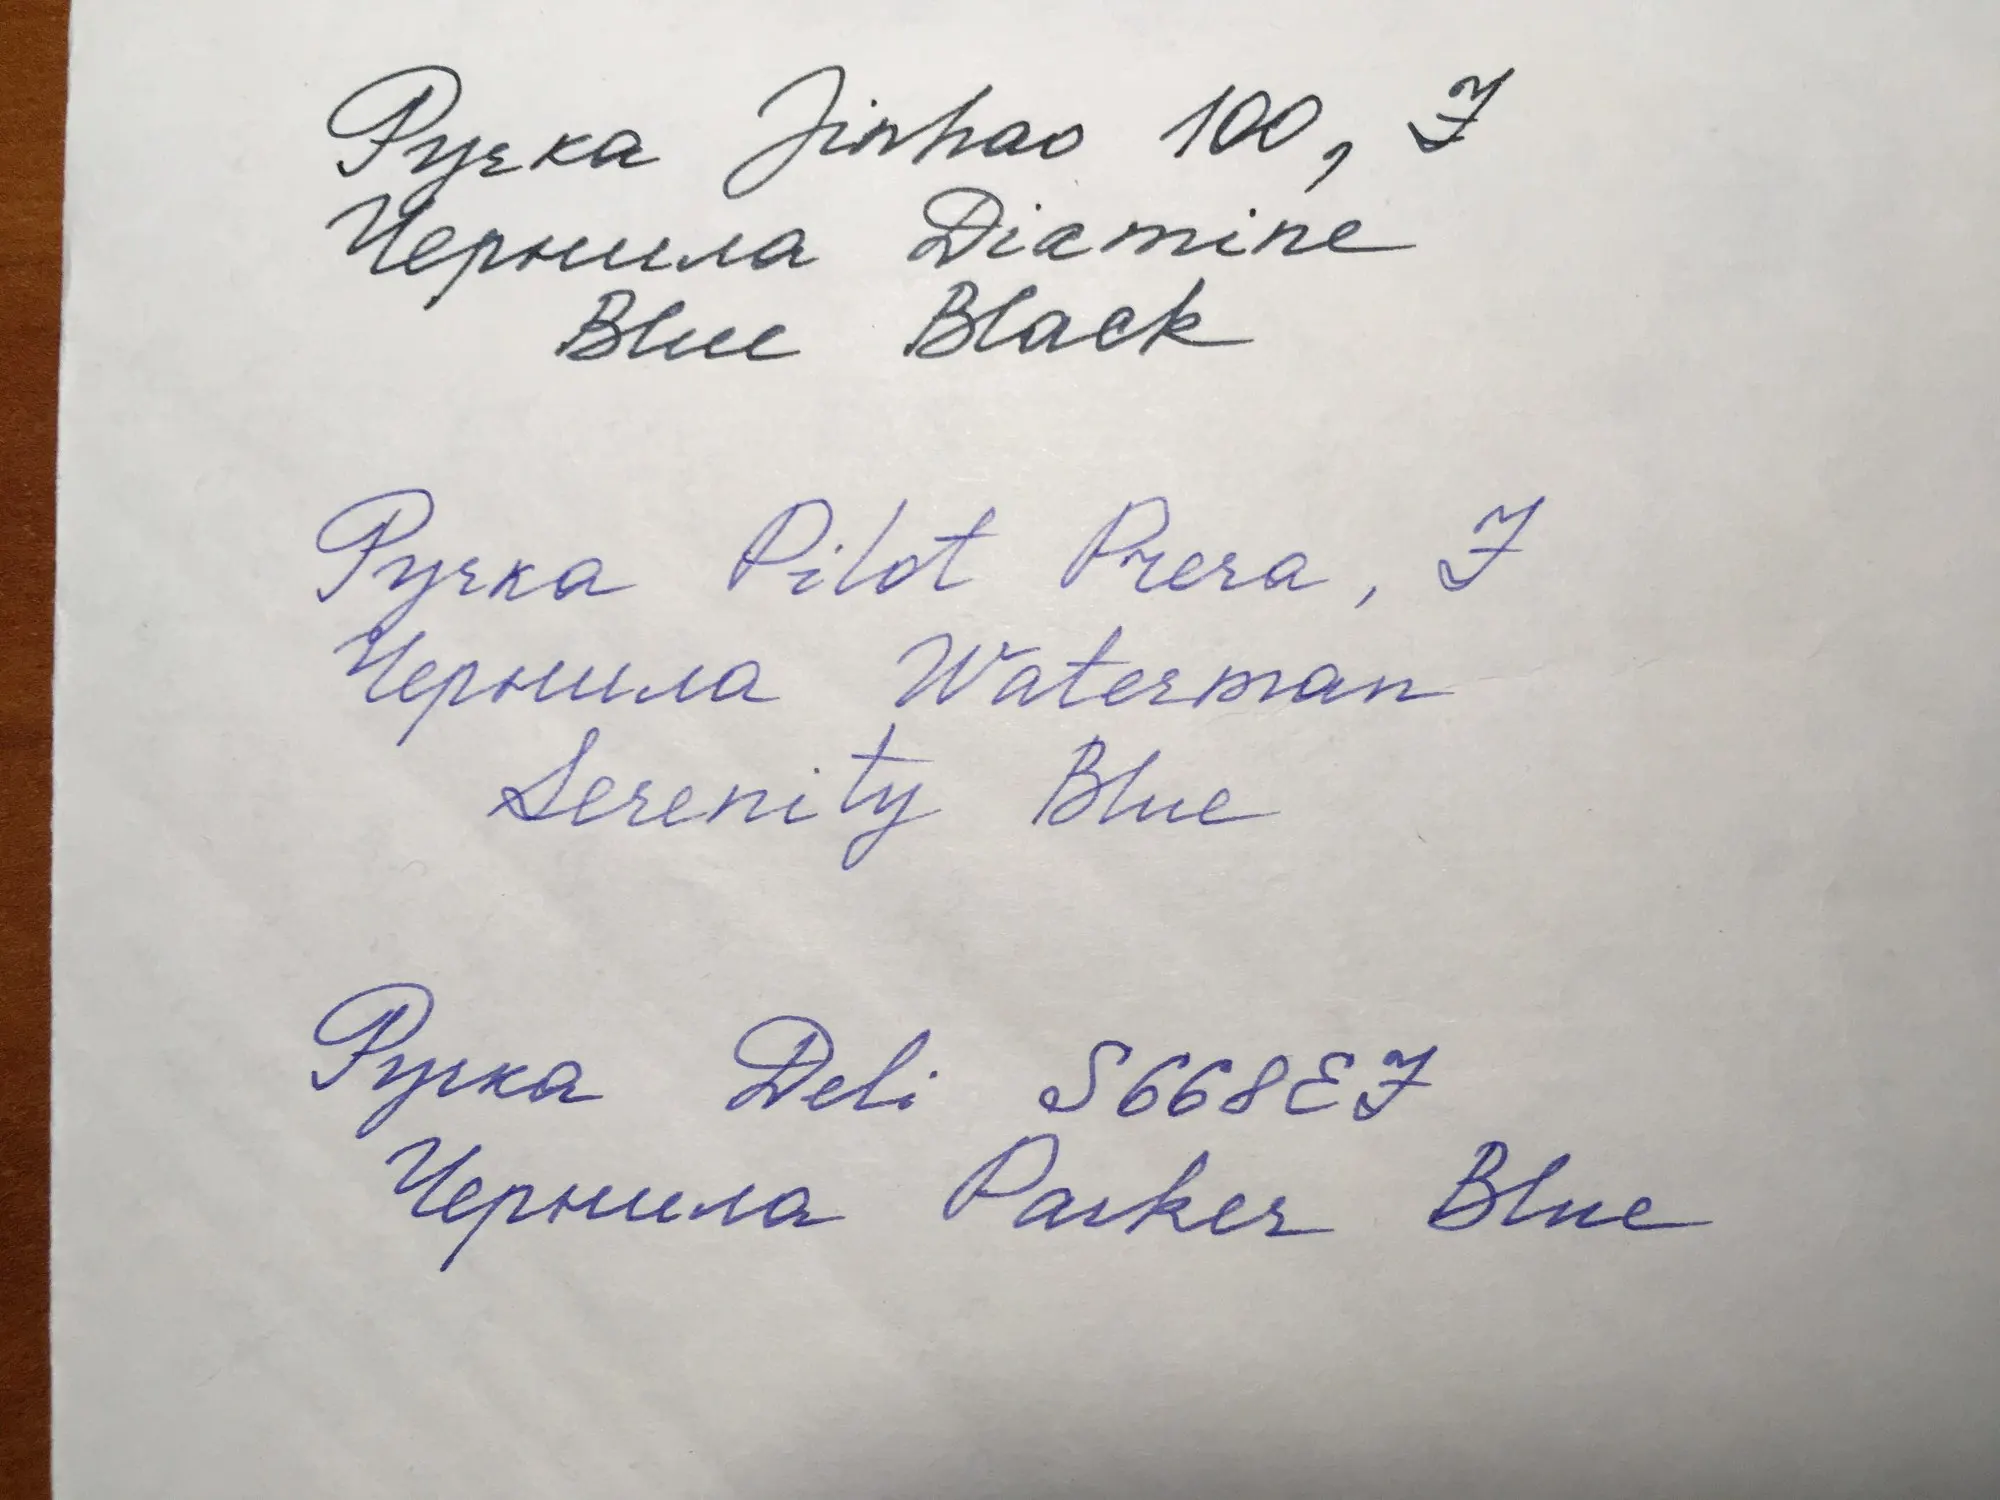 Ручка Jinhao 100, F
Чернила Diamine
Blue Black
Ручка Pilot Prera, F
Чернила Waterman
Serenity Blue
Ручка Deli S668EF
Чернила Parker Blue